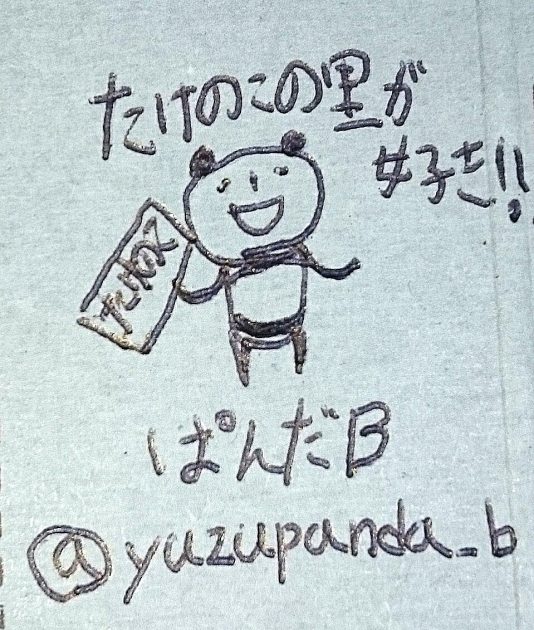 たけのこの里が
好き!!
たけのこ
ぱんだB
@yuzupanda_b